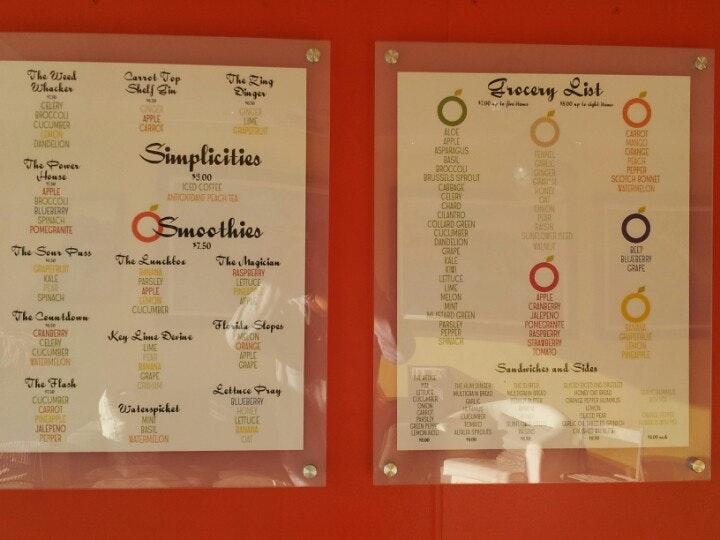 The Weed
Whacker
CELERY
BROCCOLI
CUCUMBER
LEMON
DANDELION
The Power
House
APPLE
BROCCOLI
BLUEBERRY
SPINACH
POMEGRANATE
The Sour Puss
GRAPEFRUIT
KALE
PEAR
SPINACH
The Countdown
CRANBERRY
CELERY
CUCUMBER
WATERMELON
The Flash
CUCUMBER
CARROT
PINEAPPLE
JALEPENO
PEPPER
Carrot Top
Shelf Gin
GINGER
APPLE
CARROT
The Zing
Dinger
GINGER
LIME
GRAPEFRUIT
Simplicities
$3.00
ICED COFFEE
ANTIOXIDANT PEACH TEA
Smoothies
$7.50
The Lunchbox
BANANA
PARSLEY
APPLE
LEMON
CUCUMBER
Key Lime Devine
LIME
PEAR
BANANA
GRAPE
GRAHAM
Waterspicket
MINT
BASIL
WATERMELON
The Magician
RASPBERRY
LETTUCE
PINEAPPLE
APPLE
Florida Slopes
MELON
ORANGE
APPLE
GRAPE
Lettuce Pray
BLUEBERRY
HONEY
LETTUCE
BANANA
OAT
Grocery List
$7.00 up to five items $8.00 up to eight items
ALOE
APPLE
ASPARAGUS
BASIL
BROCCOLI
BRUSSELS SPROUT
CABBAGE
CELERY
CHARD
CILANTRO
COLLARD GREEN
CUCUMBER
DANDELION
GRAPE
KALE
KIWI
LETTUCE
LIME
MELON
MINT
MUSTARD GREEN
PARSLEY
PEPPER
SPINACH
FENNEL
GARLIC
GINGER
GRAHAM
HONEY
OAT
ONION
PEAR
RAISIN
SUNFLOWER SEED
WALNUT
APPLE
CRANBERRY
JALEPENO
POMEGRANATE
RASPBERRY
STRAWBERRY
TOMATO
CARROT
MANGO
ORANGE
PEACH
PEPPER
SCOTCH BONNET
WATERMELON
BEET
BLUEBERRY
GRAPE
BANANA
GRAPEFRUIT
LEMON
PINEAPPLE
Sandwiches and Sides
PITA
LETTUCE
CUCUMBER
ONION
CARROT
PARSLEY
GREEN PEPPER
LEMON AIOLI
THE HUM DINGER
MULTIGRAIN BREAD
GARLIC
HUMMUS
CUCUMBER
TOMATO
ALFALFA SPROUTS
MULTIGRAIN BREAD
HONEY OAT BREAD
ORANGE PEPPER HUMMUS
LEMON
SLICED PEAR